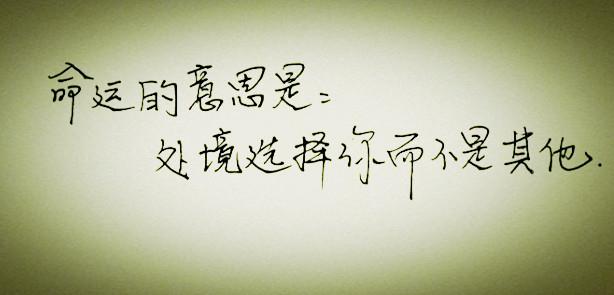 命运的意思是：
处境选择你而不是其他.